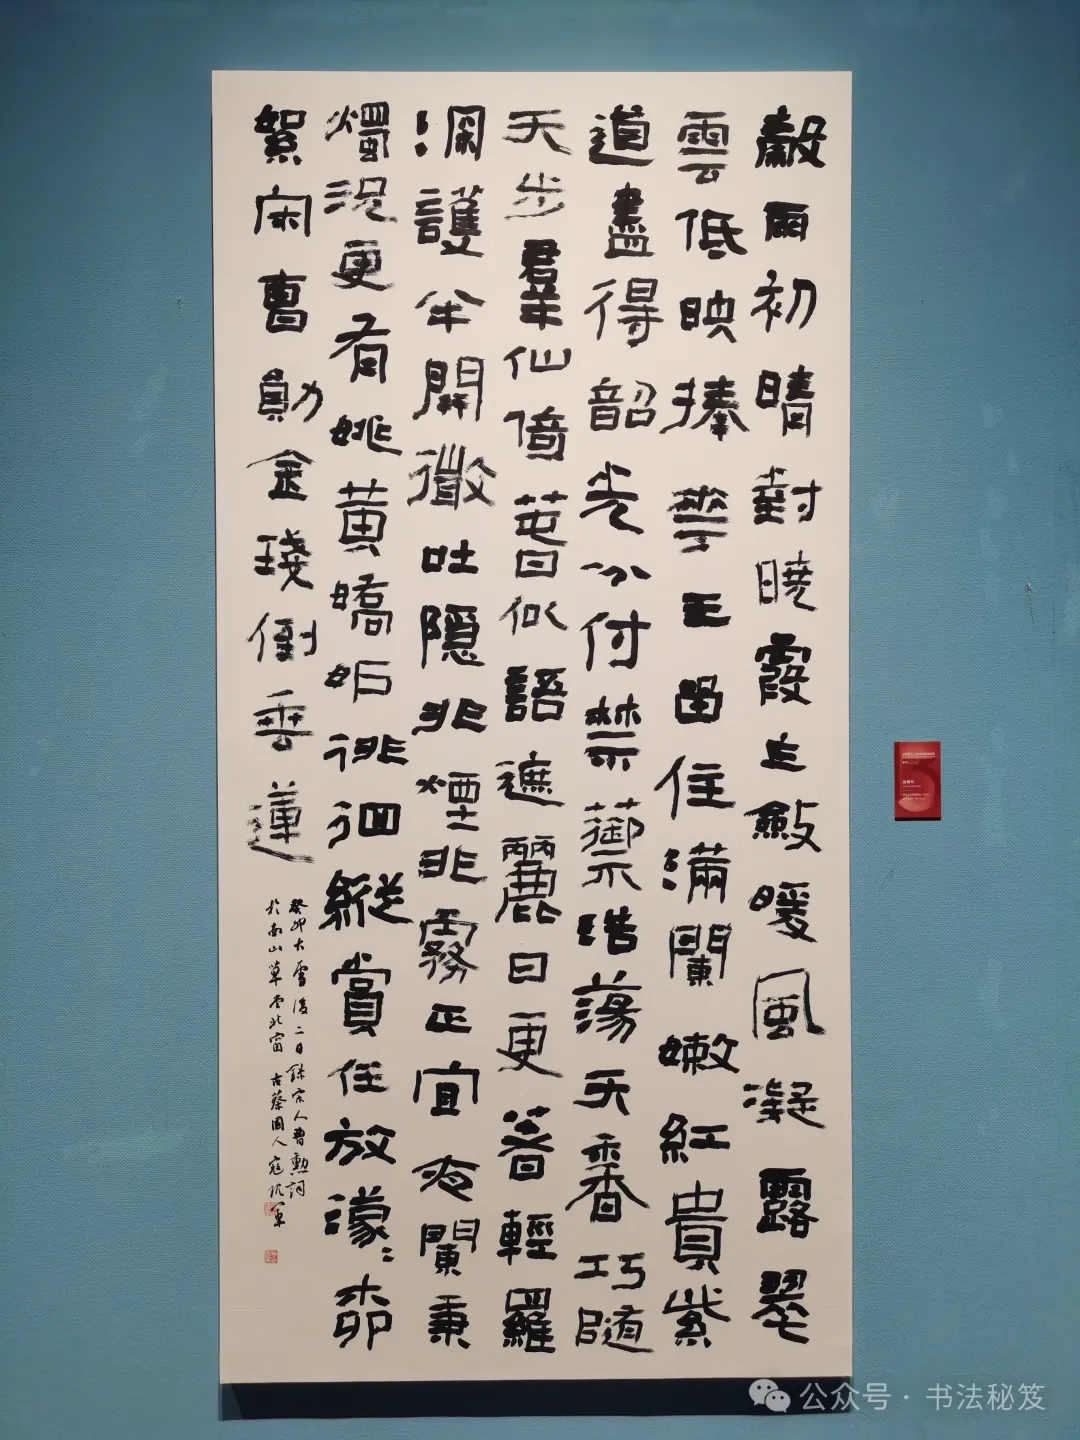 穀雨初晴對曉霞乍斂暖風凝露翠
雲低映捧華王留住滿闌嫩紅貴紫
道盡得韶光分付禁蘌浩蕩天香巧隨
天步羣仙倚春似語遮麗日更著輕羅
深護半開微吐隱非煙非霧正宜夜闌秉
燭況更有姚黃嬌妒徘徊縱賞任放濛〻柳
絮宋曹勛金琖倒垂蓮
癸卯大雪後二日錄宋人曹勳詞
於南山草堂北窗 古蔡國人寇
公众号·书法秘笈